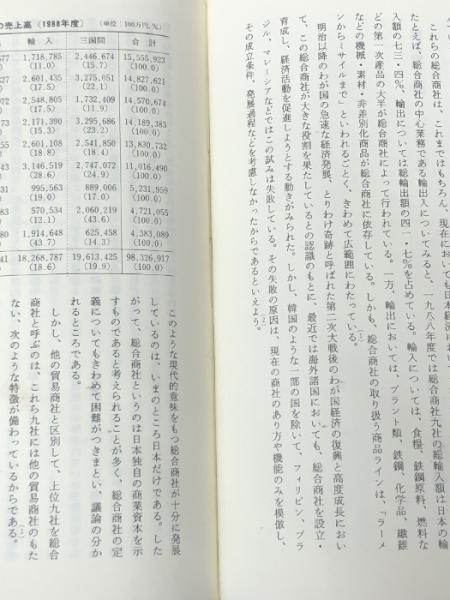 これらの総合商社は、これまではもちろん、現在においても日本経済に
たとえば、総合商社の中心業務である輸出入についてみると、一九八八年度では総合商社九社の輸入額は日本の輸
入額の七三・四％、輸出については総輸出額の四一・七％を占めている。輸入については、食糧、鉄鋼原料、燃料な
どの第一次産品の大半が総合商社によって行われている。一方、輸出においては、プラント類、鉄鋼、化学品、繊維
などの機械・素材・非差別化商品が総合商社に依存している。しかも、総合商社の取り扱う商品ラインは、「ラーメ
ンからミサイルまで」といわれるごとく、きわめて広範囲にわたっている。
明治以降のわが国の急速な経済発展、とりわけ奇跡と呼ばれた第二次大戦後のわが国経済の復興と高度成長におい
て、この総合商社が大きな役割を果たしているとの認識のもとに、最近では海外諸国においても、総合商社を設立・
育成し、経済活動を促進しようとする動きがみられた。しかし、韓国のような一部の国を除いて、フィリピン、ブラ
ジル、マレーシアなどではこの試みは失敗している。その失敗の原因は、現在の商社のあり方や機能のみを模倣し、
その成立条件、発展過程などを考慮しなかったからであるといえよう。(2)
の売上高（1988年度） （単位 100万円,%）
輸入 三国間 合計
577 1,718,785 2,446,674 15,555,923
(11.0) (15.7) (100.0)
527 2,601,435 3,275,051 14,827,621
(17.5) (22.1) (100.0)
02 2,548,805 1,732,409 14,570,674
(17.5) (11.9) (100.0)
73 2,171,390 3,295,686 14,189,383
(15.3) (23.2) (100.0)
55 2,601,108 2,541,850 13,830,732
(18.8) (18.4) (100.0)
43 3,146,510 2,747,072 11,016,490
(28.6) (24.9) (100.0)
31 995,563 889,006 5,231,959
(19.0) (17.0) (100.0)
83 570,534 2,060,219 4,721,055
(12.1) (43.6) (100.0)
80 1,914,648 625,458 4,383,089
(43.7) (14.3) (100.0)
41 18,268,787 19,613,425 98,326,917
(18.6) (19.9) (100.0)
このような現代的意味をもつ総合商社が十分に発展
しているのは、いまのところ日本だけである。した
がって、総合商社というのは日本独自の商業資本を示
すものであると考えられることが多く、総合商社の定
義についてもきわめて困難がつきまとい、議論の分か
れるところである。
しかし、他の貿易商社と区別して、上位九社を総合
商社と呼ぶのは、これら九社には他の貿易商社のもた
ない、次のような特徴が備わっているからである。(3)